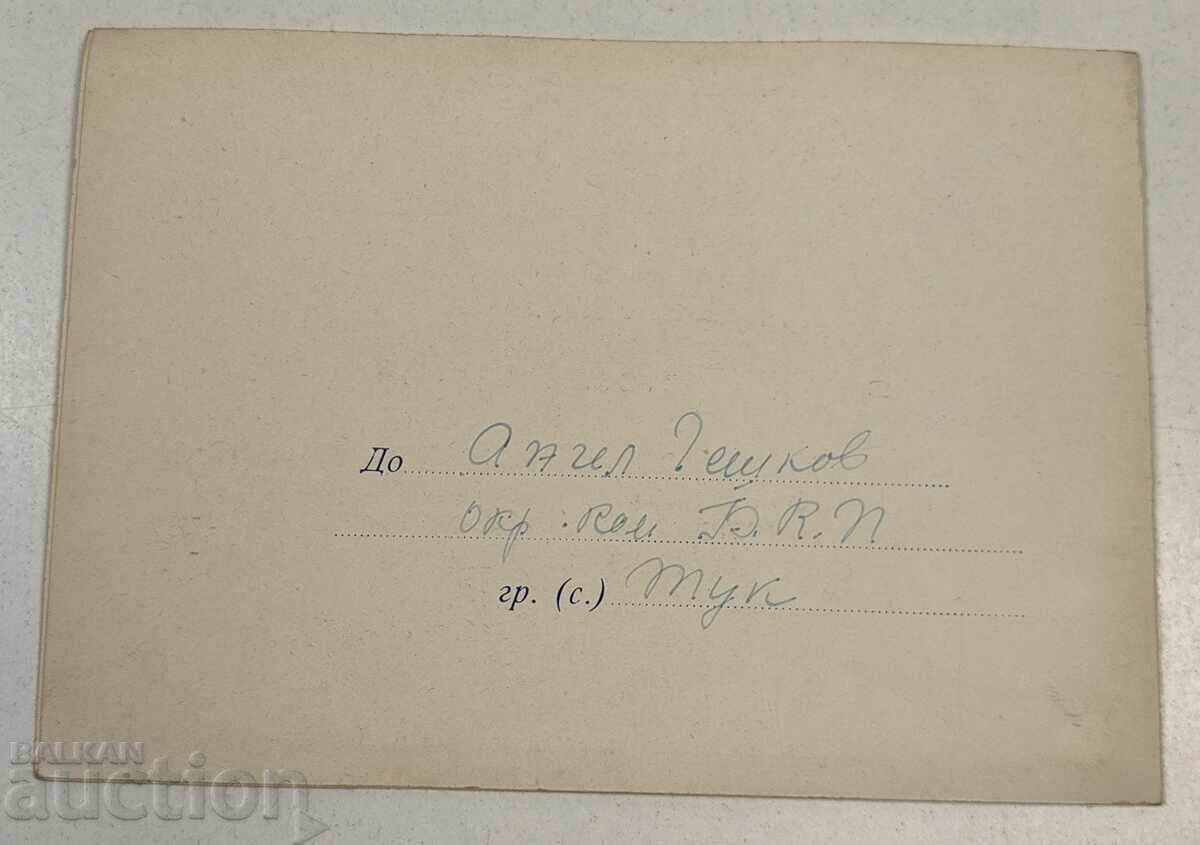 До Ангел Гешков
окр. ком Б.К.П
гр. (с.) Тук
BALKAN
auction